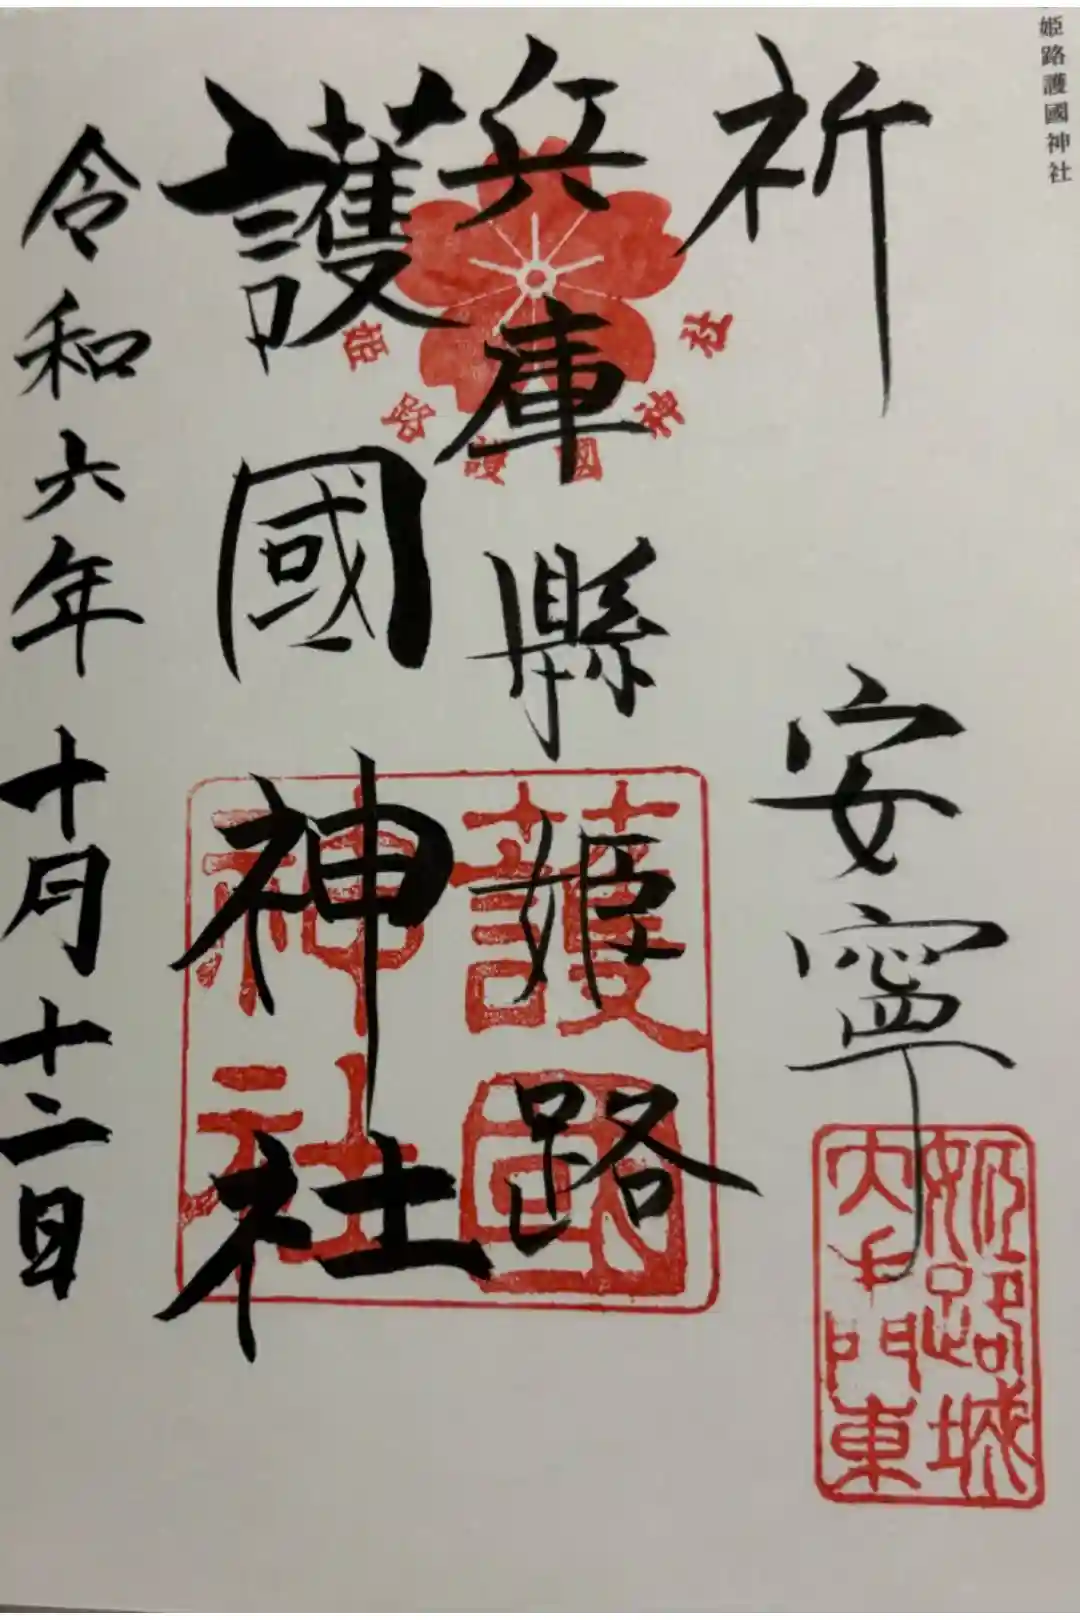 姫路護國神社
祈 安寧
兵庫縣姫路
護國神社
令和六年十月十二日
姫路護國神社
護國
神社
姫路城
大手門東